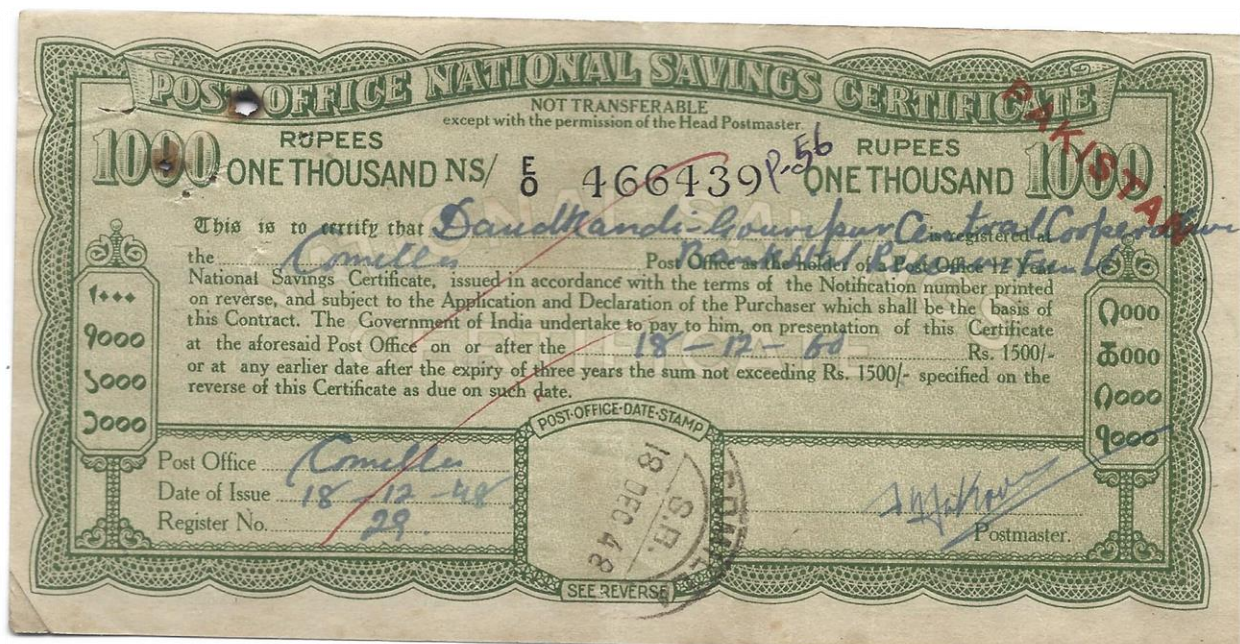 POST OFFICE NATIONAL SAVINGS CERTIFICATE
NOT TRANSFERABLE
except with the permission of the Head Postmaster.
PAKISTAN
1000 RUPEES ONE THOUSAND NS/ E/0 466439 P-56 RUPEES ONE THOUSAND 1000
This is to certify that Daudkandi-Gouripur Central Cooperative is registered at
the Comilla Post Office as the holder of a Post Office 12 Year
Bank Ltd Reserve Fund
National Savings Certificate, issued in accordance with the terms of the Notification number printed
on reverse, and subject to the Application and Declaration of the Purchaser which shall be the basis of
this Contract. The Government of India undertake to pay to him, on presentation of this Certificate
at the aforesaid Post Office on or after the 18-12-60 Rs. 1500/-
or at any earlier date after the expiry of three years the sum not exceeding Rs. 1500/- specified on the
reverse of this Certificate as due on such date.
POST-OFFICE-DATE-STAMP
Post Office Comilla
Date of Issue 18-12-48
Register No. 29
18 DEC 48
S.B.
COMILLA
Postmaster.
SEE REVERSE